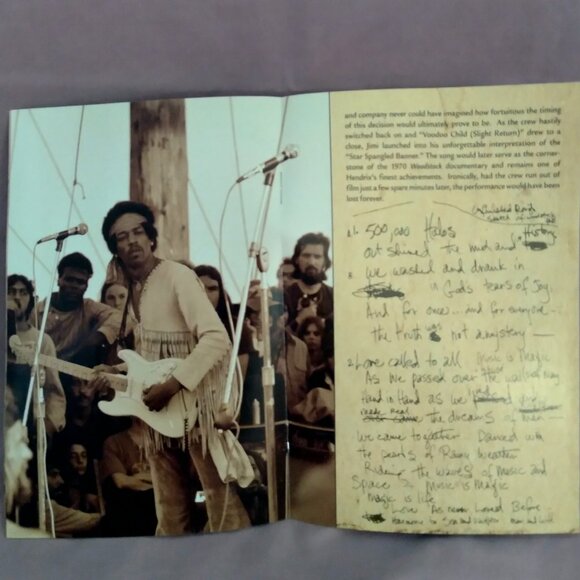 and company never could have imagined how fortuitous the timing
of this decision would ultimately prove to be. As the crew hastily
switched back on and "Voodoo Child (Slight Return)" drew to a
close, Jimi launched into his unforgettable interpretation of the
"Star Spangled Banner." The song would later serve as the corner-
stone of the 1970 Woodstock documentary and remains one of
Hendrix's finest achievements. Ironically, had the crew run out of
film just a few spare minutes later, the performance would have been
lost forever.
1. 500,000 Halos
out shined the mud and History
We washed and drank in
in God's tears of Joy.
And for once... and for everyone...
the truth was not a mystery
2. Love called to all Music is Magic
As we passed over the walls of
Hand in Hand as we and
made real the dreams of men
We came together Danced with
the pearls of Rainy Weather
Riding the waves of Music and
Space Music is Magic
Magic is life
Love As never Loved Before
Harmony to Son and